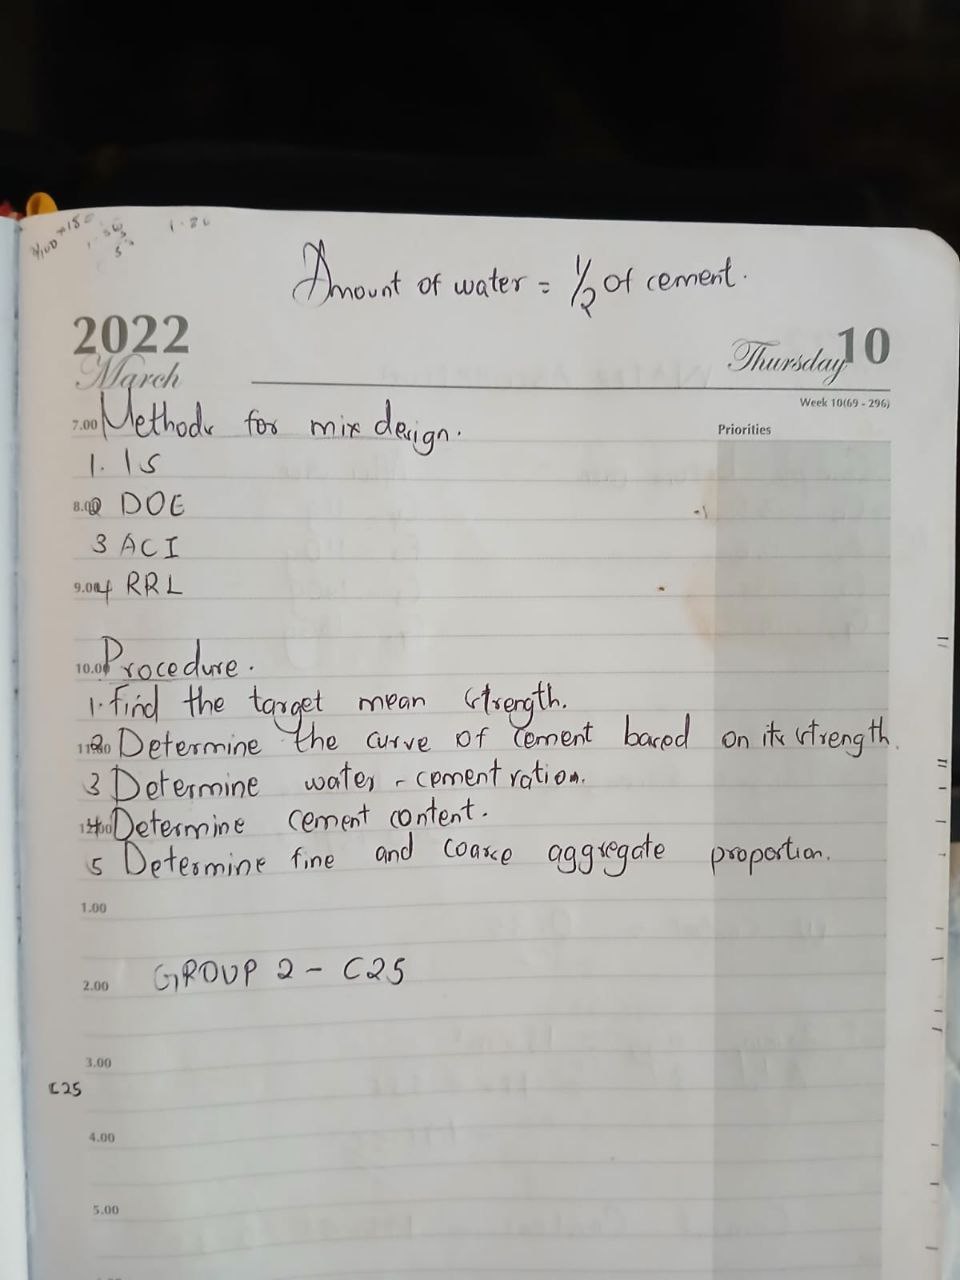 1.20
Amount of water = 1/2 of cement.
2022
March
Thursday 10
Week 10(69 - 296)
7.00 Methods for mix design.
Priorities
1. IS
8.00 2 DOE
3 ACI
9.00 4 RRL
10.00 Procedure.
1. Find the target mean strength.
11.00 2 Determine the curve of cement based on its strength.
3 Determine water - cement ration.
12.00 4 Determine cement content.
5 Determine fine and coarse aggregate proportion.
1.00
GROUP 2 - C25
2.00
3.00
C25
4.00
5.00